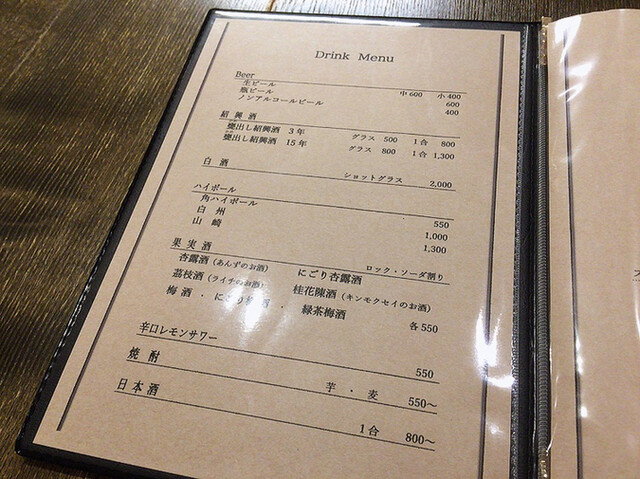 Drink Menu
Beer
生ビール 中600 小400
瓶ビール 600
ノンアルコールビール 400
紹興酒
甕出し紹興酒 3年 グラス 500 1合 800
甕出し紹興酒 15年 グラス 800 1合 1,300
白酒 ショットグラス 2,000
ハイボール
角ハイボール 550
白州 1,000
山崎 1,300
果実酒 ロック・ソーダ割り
杏露酒(あんずのお酒) にごり杏露酒
茘枝酒(ライチのお酒) 桂花陳酒(キンモクセイのお酒)
梅酒・にごり梅酒・緑茶梅酒 各550
辛口レモンサワー 550
焼酎 芋・麦 550〜
日本酒 1合 800〜